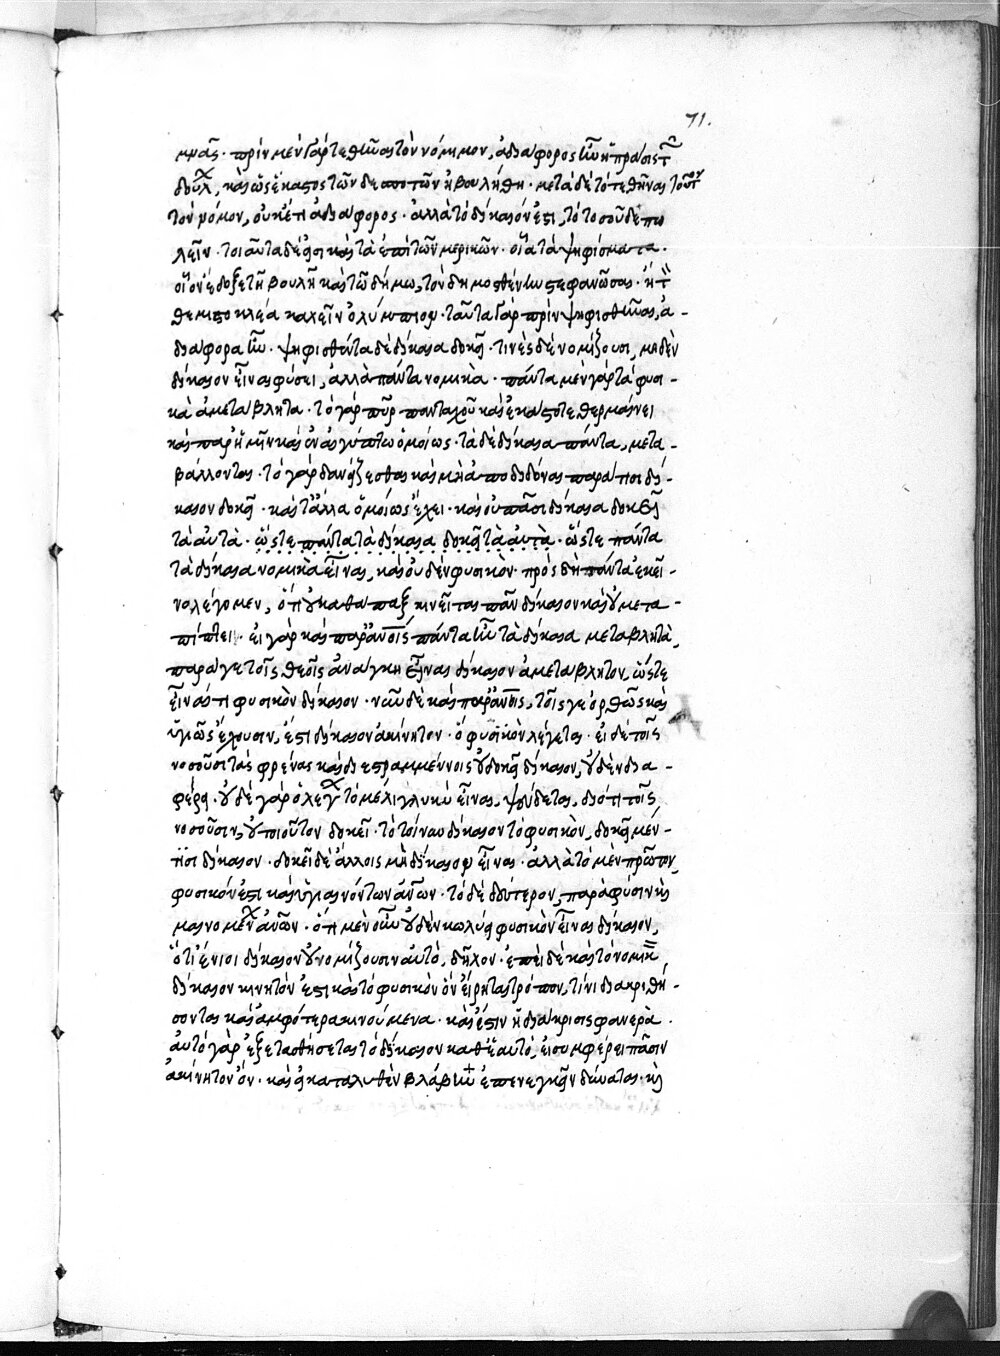 71.
μνᾶς. πρὶν μὲν γάρ τεθῆναι τὸν νόμιμον, ἀδιάφορος ἦν ἡ πρᾶσις τῶν
δούλ, καὶ ὡς ἕκαστος τῶν δεσποτῶν ἠβουλήθη. μετὰ δὲ τὸ τεθῆναι τοῦτον
τὸν νόμον, οὐκέτι ἀδιάφορος. ἀλλὰ τὸ δίκαιόν ἐστι, τὸ τοσοῦδε πω
λεῖν. τοιαῦτα δέ εἰσι καὶ τὰ ἐπὶ τῶν μερικῶν. οἷα τὰ ψηφίσματα.
οἷον ἔδοξε τῆ βουλῆ καὶ τῶ δήμω, τὸν δημοσθένην στεφανῶσαι. ἢ τὸν
θεμιστοκλέα καλεῖν ὀλύμπιον. ταῦτα γὰρ πρὶν ψηφισθῆναι, ἀ-
διάφορα ἦν. ψηφισθέντα δὲ δίκαια δοκεῖ. τινὲς δὲ νομίζουσι, μηδὲν
δίκαιον εἶναι φύσει, ἀλλὰ πάντα νομικὰ. πάντα μὲν γάρ τὰ φυσι-
κὰ ἀμετάβλητα. τὸ γὰρ πῦρ πανταχοῦ καὶ ἑκάστοτε θερμαίνει
καὶ παρ' ἡμῖν καὶ ἐν αἰγύπτω ὁμοίως. τὰ δὲ δίκαια πάντα, μετα-
βάλλονται. τὸ γὰρ δανείζεσθαι καὶ μὴ ἀποδιδόναι παρά τισι δί-
καιον δοκεῖ. καὶ τἆλλα ὁμοίως ἔχει. καὶ οὐ πᾶσι δίκαια δοκεῖ
τὰ αὐτά. ὥστε πάντα τὰ δίκαια δοκεῖ τὰ αὐτὰ. ὥστε πάντα
τὰ δίκαια νομικὰ εἶναι, καὶ οὐδὲν φυσικὸν. πρὸς δὴ πάντα ἐκεῖ-
νο λέγομεν, ὅτι οὐ καθάπαξ κινεῖται πᾶν δίκαιον καὶ οὐ μετα-
πίπτει. εἰ γὰρ καὶ παρ' ἀνοις πάντα ἦν τὰ δίκαια μεταβλητὰ,
παρά γε τοῖς θεοῖς ἀνάγκη εἶναι δίκαιον ἀμετάβλητον, ὥστε
εἶναί τι φυσικὸν δίκαιον. νῦν δὲ καὶ παρ' ἀνοις, τοῖς γε ὀρθῶς καὶ
ὑγιῶς ἔχουσιν, ἔστι δίκαιον ἀκίνητον. ὃ φυσικὸν λέγεται. εἰ δὲ τοῖς
νοσοῦσι τὰς φρένας καὶ διεστραμμένοις οὐ δοκεῖ δίκαιον, οὐδὲν δια-
φέρει. οὐδὲ γὰρ ὁ λέγ τὸ μέλι γλυκὺ εἶναι, ψεύδεται, διότι τοῖς
νοσοῦσιν, οὐ τοιοῦτον δοκεῖ. τὸ τοίνυν δίκαιον τὸ φυσικὸν, δοκεῖ μέν-
τισι δίκαιον. δοκεῖ δὲ ἄλλοις μὴ δίκαιον εἶναι. ἀλλὰ τὸ μὲν πρῶτον,
φυσικόν ἐστι καὶ ὑγιαινόντων ἀνων. τὸ δὲ δεύτερον, παρὰ φύσιν καὶ
μαινομέν ἀνων. ὅτι μὲν οὖν οὐδὲν κωλύει φυσικὸν εἶναι δίκαιον,
ὅτι ἔνιοι δίκαιον οὐ νομίζουσιν αὐτὸ, δῆλον. ἐπεὶ δὲ καὶ τὸ νομικ
δίκαιον κινητὸν ἐστι καὶ τὸ φυσικὸν ὃν εἴρηται τρόπον, τίνι διακριθή-
σονται καὶ ἀμφότερα κινούμενα. καὶ ἔστιν ἡ διάκρισις φανερὰ.
αὐτὸ γὰρ ἐξετασθήσεται τὸ δίκαιον καθ' ἑαυτὸ, εἰ συμφέρει πᾶσιν
ἀκίνητον ὂν. καὶ εἰ καταλυθὲν βλάβην ἐπενεγκεῖν δύναται. καὶ